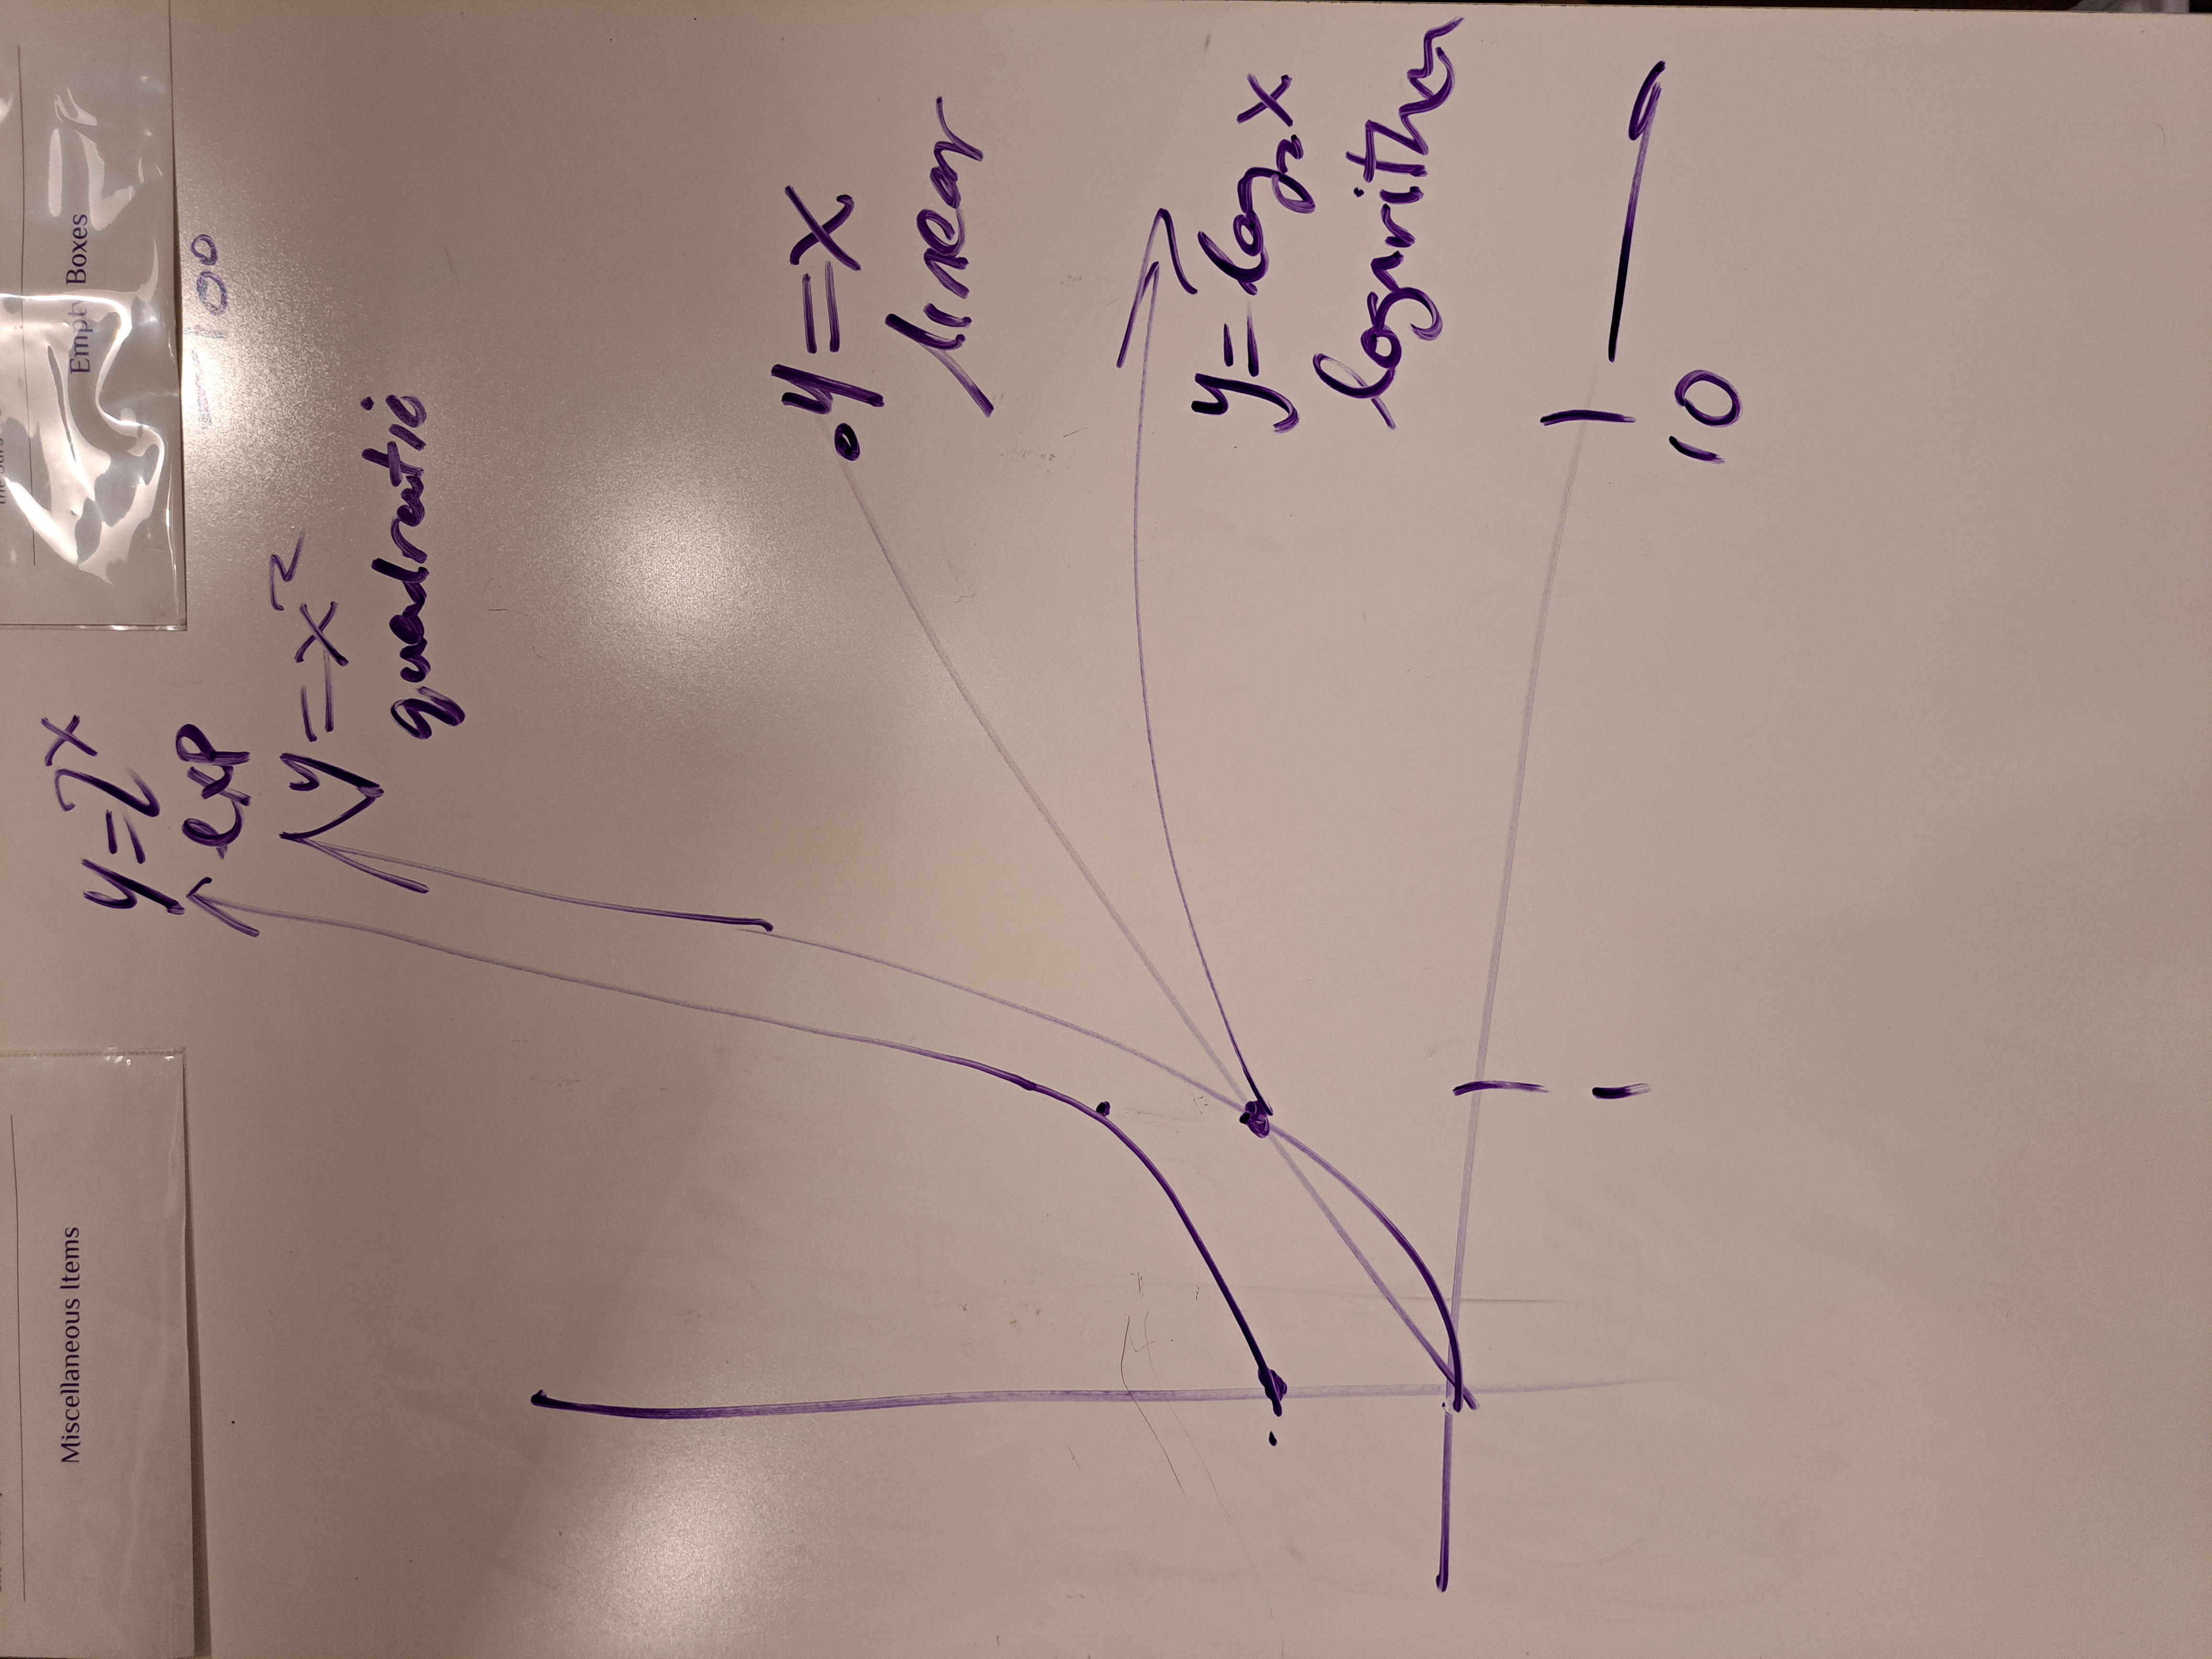 Miscellaneous Items
Empty Boxes
y=2^x
exp
100
y=x²
quadratic
y=x
linear
y=log₂x
logarithm
1
10